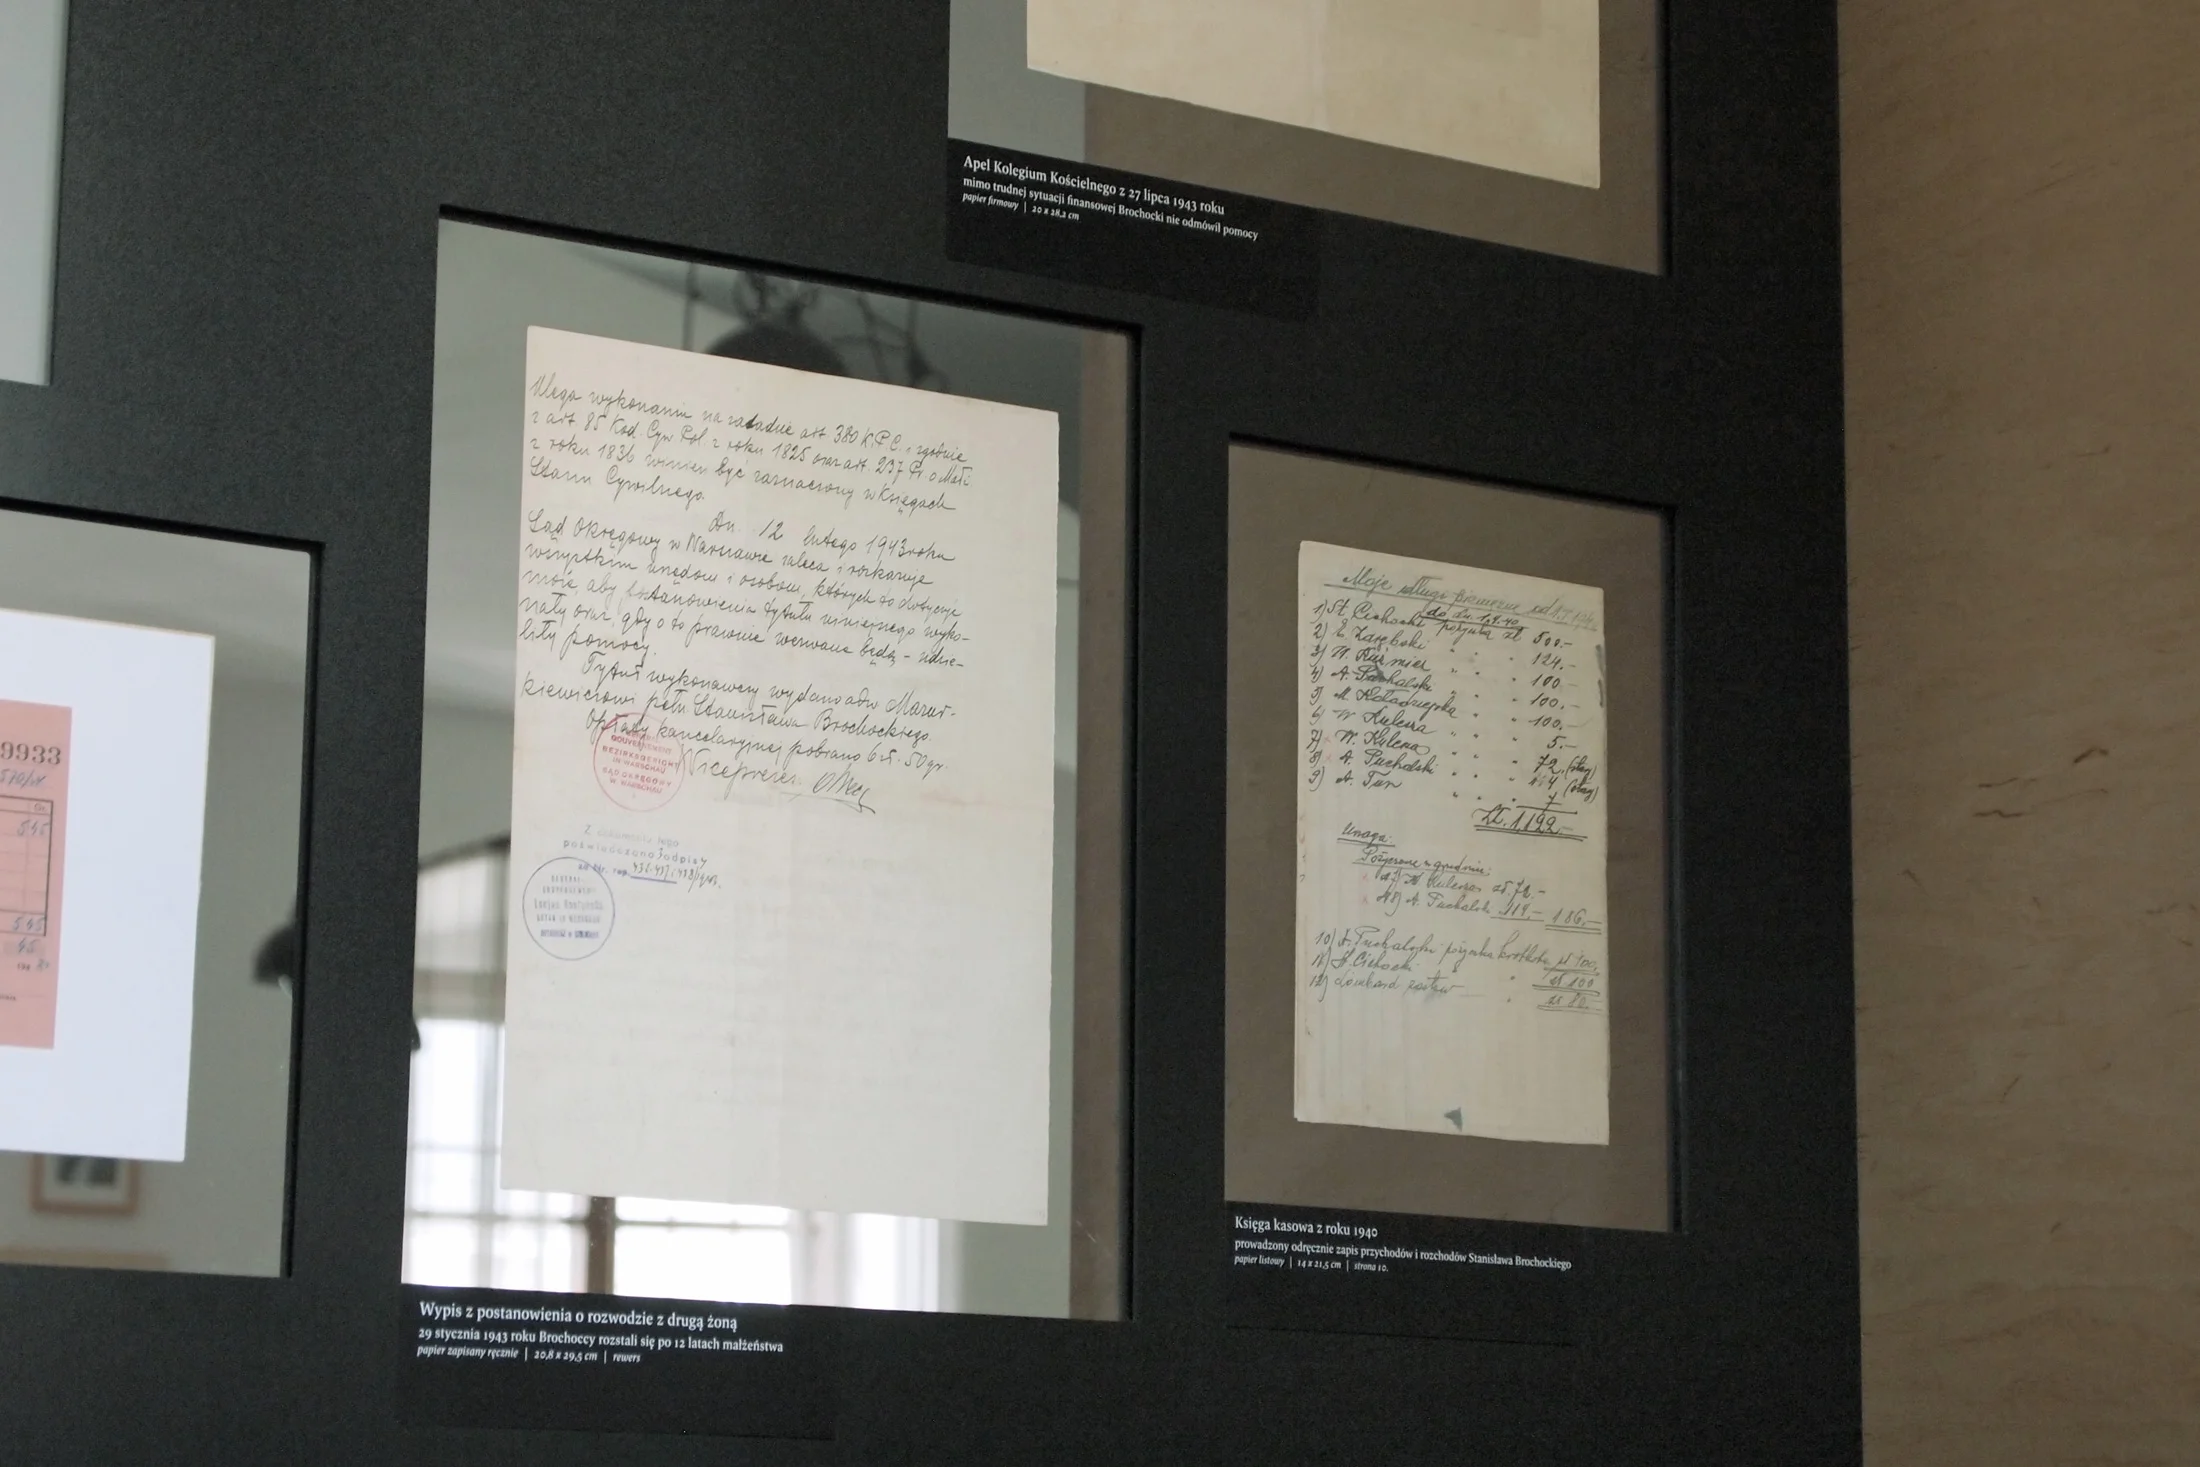 Apel Kolegium Kościelnego z 27 lipca 1943 roku
mimo trudnej sytuacji finansowej Brochocki nie odmówił pomocy
papier firmowy | 20 x 28,2 cm
Ulega wykonaniu na zasadzie art. 380 K.P.C. i zgodnie
z art 85 Kod. Cyw Pol. z roku 1825 oraz art. 237 Pr. o Małż.
z roku 1836 winien być zaznaczony w Księgach
Stanu Cywilnego.
Dn. 12 lutego 1943 roku
Sąd Okręgowy w Warszawie zaleca i rozkazuje
wszystkim urzędom i osobom, których to dotyczyć
może, aby postanowienia tytułu niniejszego wyko-
nały oraz, gdy o to prawnie wezwane będą - udzie-
liły pomocy.
Tytuł wykonawczy wydano adw. Mazur-
kiewiczowi pełn. Stanisława Brochockiego.
Opłaty kancelaryjnej pobrano 6 zł. 50 gr.
Wiceprezes
GOUVERNEMENT
BEZIRKSGERICHT
IN WARSCHAU
SĄD OKRĘGOWY
W WARSCHAU
Z dokumentu tego
poświadczono podpisy
Wypis z postanowienia o rozwodzie z drugą żoną
29 stycznia 1943 roku Brochoccy rozstali się po 12 latach małżeństwa
papier zapisany ręcznie | 20,8 x 29,5 cm | rewers
9933
545
545
45
Moje długi
do dn. 1.9.40
1) St. Cichocki pożyczka zł 500.-
2) E. Zarębski " " " 124.-
3) " " " 100.-
4) A. Puchalski " " " 100.-
5) M. Kołodziejska " " " 100.-
6) W. Kulesza " " " 5.-
7) W. Kulesza " " " 72.
8) A. Puchalski " " "
9) A. Tur " " " 7
Zł. 1.122.-
Uwaga:
Pożyczone w grudniu:
W. Kulesza zł. 72.-
A. Puchalski 114.- 186.-
10) A. Puchalski pożyczka zł 100.
11) St. Cichocki " zł 100
12) Lombard zastaw " zł 80.-
Księga kasowa z roku 1940
prowadzony odręcznie zapis przychodów i rozchodów Stanisława Brochockiego
papier listowy | 14 x 21,5 cm | strona 10.